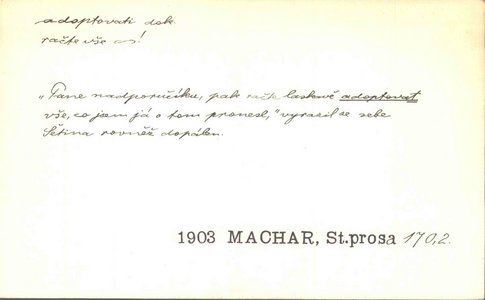 adoptovati dok.
račte vše as!
„Pane nadporučíku, pak račte laskavě adoptovat
vše, co jsem já o tom pronesl,“ vyrazil ze sebe
Štětina rovněž dopálen.
1903 MACHAR, St.prosa 170,2.